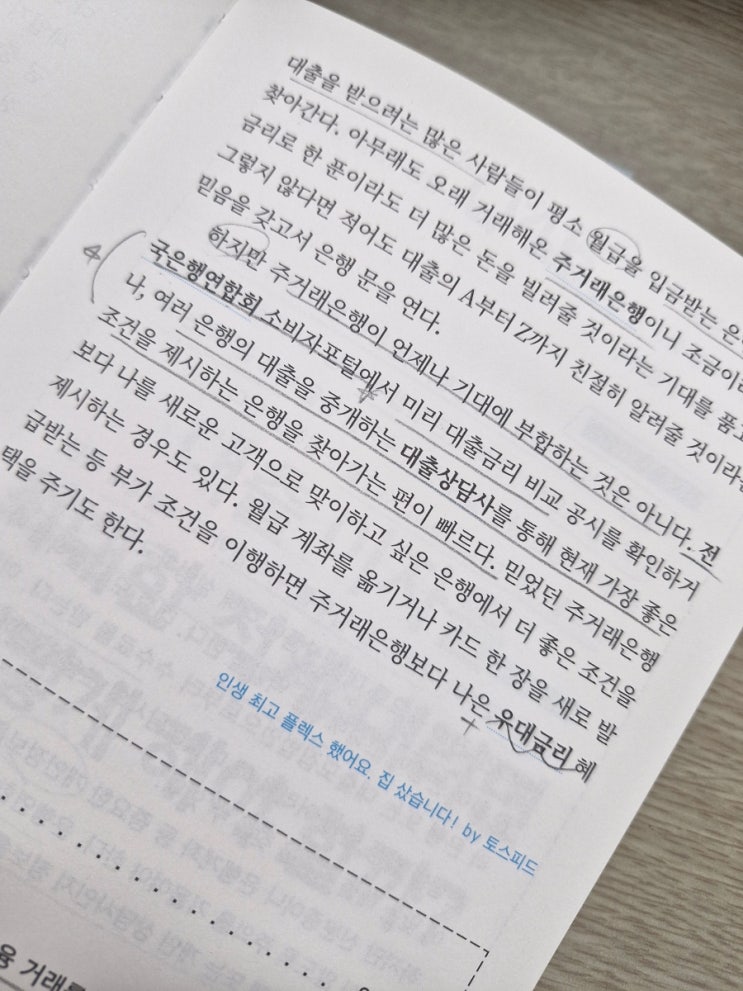 대출을 받으려는 많은 사람들이 평소 월급을 입금받는
찾아간다. 아무래도 오래 거래해온 주거래은행이니
금리로 한 푼이라도 더 많은 돈을 빌려줄 것이라는 기대를 품고
그렇지 않다면 적어도 대출의 A부터 Z까지 친절히 알려줄
믿음을 갖고서 은행 문을 연다.
하지만 주거래은행이 언제나 기대에 부합하는 것은 아니다. 전
국은행연합회 소비자포털에서 미리 대출금리 비교 공시를 확인하거
나, 여러 은행의 대출을 중개하는 대출상담사를 통해 현재 가장 좋은
조건을 제시하는 은행을 찾아가는 편이 빠르다. 믿었던 주거래은행
보다 나를 새로운 고객으로 맞이하고 싶은 은행에서 더 좋은 조건을
제시하는 경우도 있다. 월급 계좌를 옮기거나 카드 한 장을 새로 발
급받는 등 부가 조건을 이행하면 주거래은행보다 나은 우대금리 혜
택을 주기도 한다.
인생 최고 플렉스 했어요. 집 샀습니다! by 토스피드